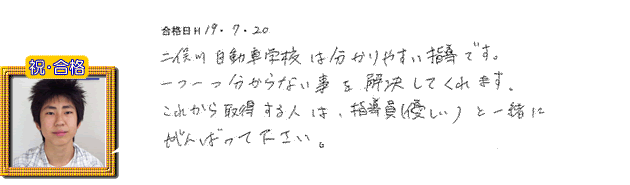 合格日H 19・7・20
二俣川自動車学校は分かりやすい指導です。
一つ一つ分からない事を解決してくれます。
祝・合格
これから取得する人は、指導員(優しい)と一緒に
がんばって下さい。